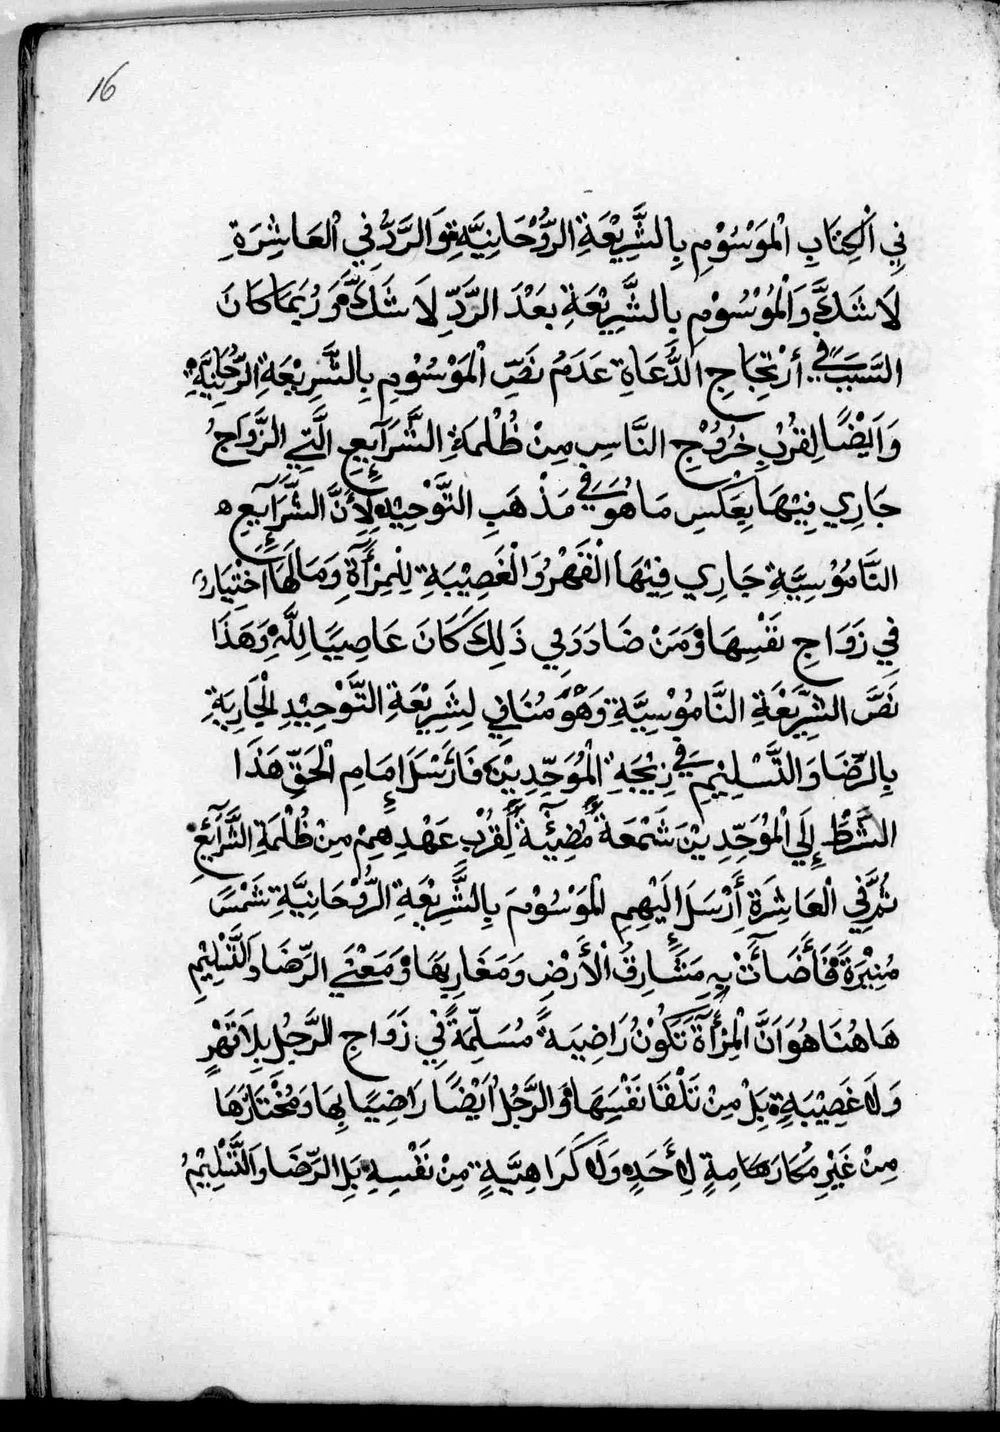 16
فِي الْكِتَابِ الْمَوْسُوْمِ بِالشَّرِيْعَةِ الرُّوْحَانِيَّةِ وَالرَّدُّ فِي الْعَاشِرَةِ
لَا شَكَّ وَالْمَوْسُوْمِ بِالشَّرِيْعَةِ بَعْدَ الرَّدِّ لَا شَكَّ وَرُبَمَا كَانَ
السَّبَبُ فِي أَرْتِجَاجِ الدُّعَاةِ عَدَمُ نَصِّ الْمَوْسُوْمِ بِالشَّرِيْعَةِ الرُّحَانِيَّةِ
وَاَيْضًا لِقُرْبِ خُرُوْجِ النَّاسِ مِنْ ظُلْمَةِ الشَّرَآيِعِ الَّتِي الزَّوَاجُ
جَارِي فِيْهَا بِعَكْسِ مَا هُوَ فِي مَذْهَبِ التَّوْحِيْدِ لِأَنَّ الشَّرَآيِعِ
النَّامُوْسِيَّةِ جَارِي فِيْهَا الْقَهْرُ وَالْغَصِيْبَةِ لِلْمِرْأَةِ وَمَا لَهَا اخْتِيَارُ
فِي زَوَاجِ نَفْسِهَا وَمَنْ ضَادَدَ فِي ذَلِكَ كَانَ عَاصِيًا لِلَّهِ وَهَذَا
نَصَّ الشَّرِيْعَةِ النَّامُوْسِيَّةِ وَهُوَ مُنَافِي لِشَرِيْعَةِ التَّوْحِيْدِ الْجَارِيَةِ
بِالرِّضَا وَالتَّسْلِيْمِ فِي زِيْجَةِ الْمُوَحِّدِيْنَ فَأَرْسَلَ إِمَامِ الْحَقِّ هَذَا
الشَّرْطُ إِلَي الْمُوَحِّدِيْنَ شَمْعَةً مُضِيْئَةً لِقُرْبِ عَهْدِهِمْ مِنْ ظُلْمَةِ الشَّرَآئِعِ
ثُمَّ فِي الْعَاشِرَةِ أَرْسَلَ اَلَيْهِمِ الْمَوْسُوْمَ بِالشَّرِيْعَةِ الرُّوْحَانِيَّةِ شَمْسًا
مُنِيْرَةً فَأَضَآتْ بِهِ مَشَارِقُ الْأَرْضِ وَمَغَارِبِهَا وَمَعْنَي الرِّضَا وَالتَّسْلِيْمِ
هَا هُنَا هُوَ اَنَّ الْمِرْأَةَ تَكُوْنُ رَاضِيَةً مُسَلِّمَةً فِي زَوَاجِ الرَّجُلِ بِلَا قَهْرٍ
وَلَا غَصِيْبَةٍ بَلْ مِنْ تَلْقَا نَفْسِهَا وَالرَّجُلُ اَيْضًا رَاضِيًا بِهَا وَمُخْتَارَهَا
مِنْ غَيْرِ مُكَارَهَامَةٍ لِأَحَدٍ وَلَا كَرَاهِيَّةٍ مِنْ نَفْسِهِ بَلِ الرِّضَا وَالتَّسْلِيْمُ